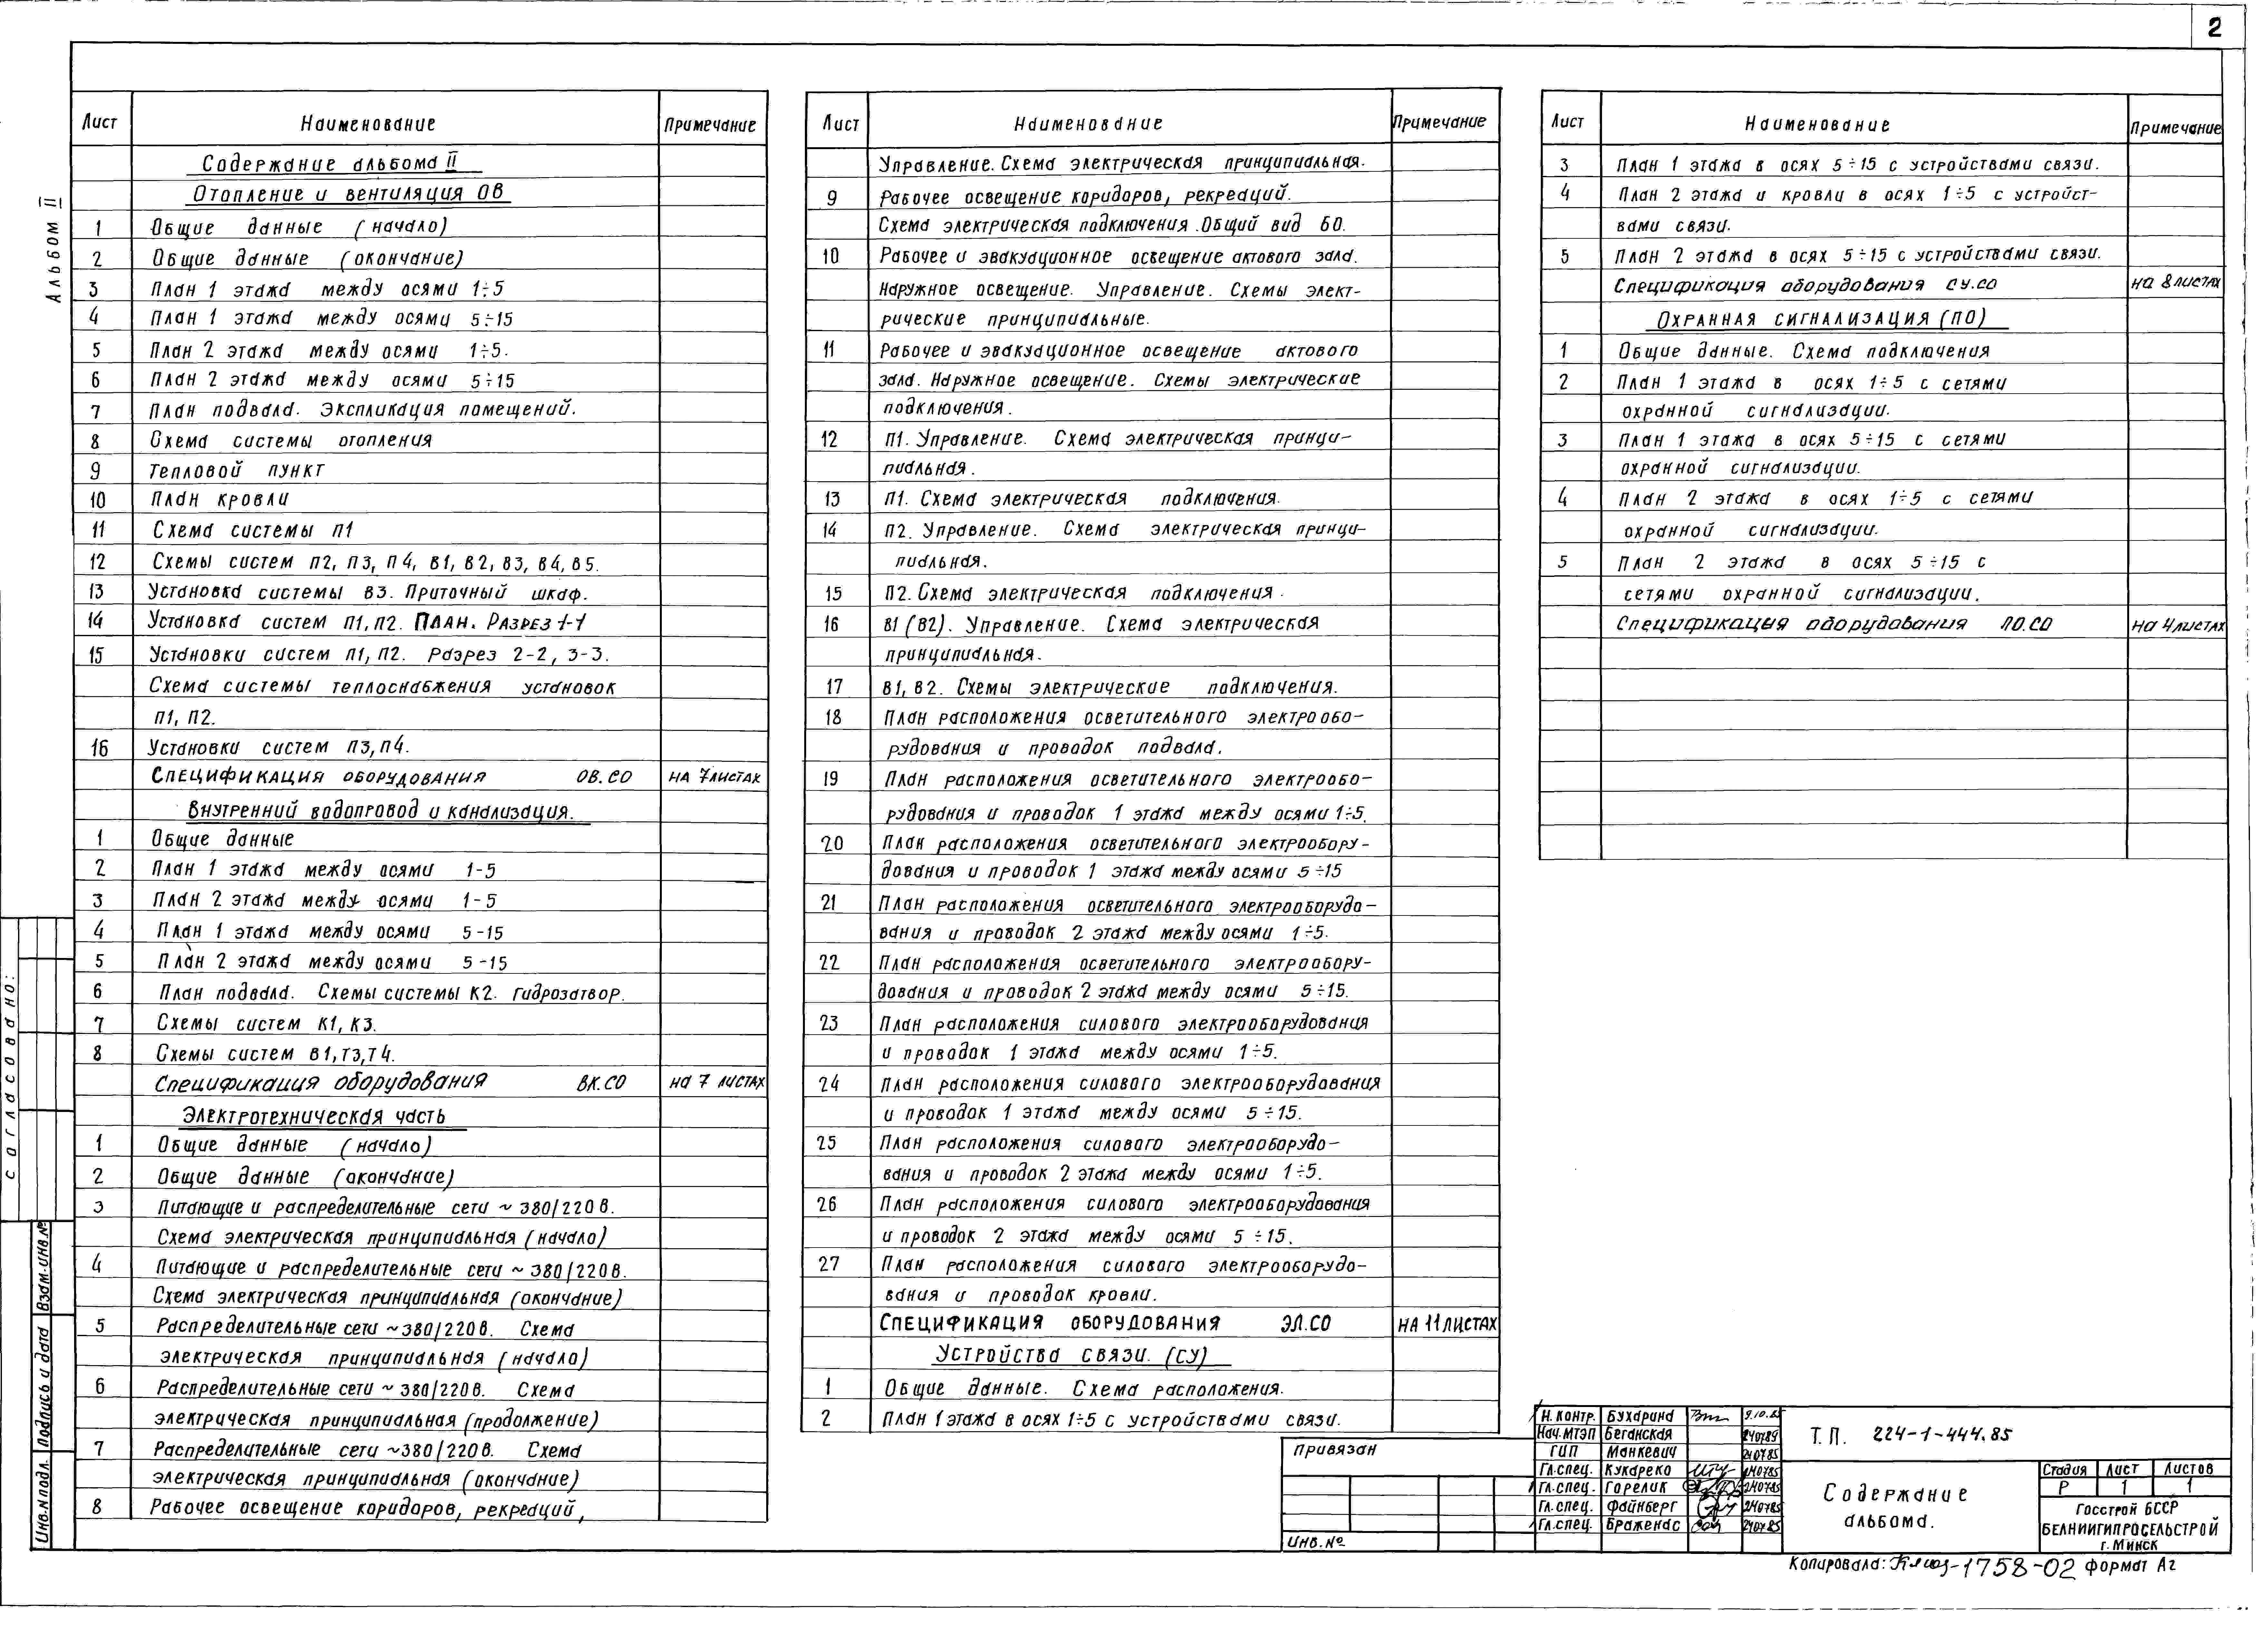 2
Альбом II
Лист Наименование Примечание
Содержание альбома II
Отопление и вентиляция ОВ
1 Общие данные (начало)
2 Общие данные (окончание)
3 План 1 этажа между осями 1÷5
4 План 1 этажа между осями 5÷15
5 План 2 этажа между осями 1÷5.
6 План 2 этажа между осями 5÷15
7 План подвала. Экспликация помещений.
8 Схема системы отопления
9 Тепловой пункт
10 План кровли
11 Схема системы П1
12 Схемы систем П2, П3, П4, В1, В2, В3, В4, В5.
13 Установка системы В3. Приточный шкаф.
14 Установка систем П1, П2. План. Разрез 1-1
15 Установки систем П1, П2. Разрез 2-2, 3-3.
Схема системы теплоснабжения установок
П1, П2.
16 Установки систем П3, П4.
Спецификация оборудования ОВ.СО на 7 листах
Внутренний водопровод и канализация.
1 Общие данные
2 План 1 этажа между осями 1-5
3 План 2 этажа между осями 1-5
4 План 1 этажа между осями 5-15
5 План 2 этажа между осями 5-15
6 План подвала. Схемы системы К2. Гидрозатвор.
7 Схемы систем К1, К3.
8 Схемы систем В1, Т3, Т4.
Спецификация оборудования ВК.СО на 7 листах
Электротехническая часть
1 Общие данные (начало)
2 Общие данные (окончание)
3 Питающие и распределительные сети ~ 380/220 В.
Схема электрическая принципиальная (начало)
4 Питающие и распределительные сети ~ 380/220 В.
Схема электрическая принципиальная (окончание)
5 Распределительные сети ~ 380/220 В. Схема
электрическая принципиальная (начало)
6 Распределительные сети ~ 380/220 В. Схема
электрическая принципиальная (продолжение)
7 Распределительные сети ~ 380/220 В. Схема
электрическая принципиальная (окончание)
8 Рабочее освещение коридоров, рекреаций,
Лист Наименование Примечание
Управление. Схема электрическая принципиальная.
9 Рабочее освещение коридоров, рекреаций.
Схема электрическая подключения. Общий вид БО.
10 Рабочее и эвакуационное освещение актового зала.
Наружное освещение. Управление. Схемы элект-
рические принципиальные.
11 Рабочее и эвакуационное освещение актового
зала. Наружное освещение. Схемы электрические
подключения.
12 П1. Управление. Схема электрическая принци-
пиальная.
13 П1. Схема электрическая подключения.
14 П2. Управление. Схема электрическая принци-
пиальная.
15 П2. Схема электрическая подключения.
16 В1 (В2). Управление. Схема электрическая
принципиальная.
17 В1, В2. Схемы электрические подключения.
18 План расположения осветительного электрообо-
рудования и проводок подвала.
19 План расположения осветительного электрообо-
рудования и проводок 1 этажа между осями 1÷5.
20 План расположения осветительного электрообору-
дования и проводок 1 этажа между осями 5÷15
21 План расположения осветительного электрооборудо-
вания и проводок 2 этажа между осями 1÷5.
22 План расположения осветительного электрообору-
дования и проводок 2 этажа между осями 5÷15.
23 План расположения силового электрооборудования
и проводок 1 этажа между осями 1÷5.
24 План расположения силового электрооборудования
и проводок 1 этажа между осями 5÷15.
25 План расположения силового электрооборудо-
вания и проводок 2 этажа между осями 1÷5.
26 План расположения силового электрооборудования
и проводок 2 этажа между осями 5÷15.
27 План расположения силового электрооборудо-
вания и проводок кровли.
Спецификация оборудования ЭЛ.СО на 11 листах
Устройства связи. (СУ)
1 Общие данные. Схема расположения.
2 План 1 этажа в осях 1÷5 с устройствами связи.
Лист Наименование Примечание
3 План 1 этажа в осях 5÷15 с устройствами связи.
4 План 2 этажа и кровли в осях 1÷5 с устройст-
вами связи.
5 План 2 этажа в осях 5÷15 с устройствами связи.
Спецификация оборудования СУ.СО на 8 листах
Охранная сигнализация (ПО)
1 Общие данные. Схема подключения
2 План 1 этажа в осях 1÷5 с сетями
охранной сигнализации.
3 План 1 этажа в осях 5÷15 с сетями
охранной сигнализации.
4 План 2 этажа в осях 1÷5 с сетями
охранной сигнализации.
5 План 2 этажа в осях 5÷15 с
сетями охранной сигнализации.
Спецификация оборудования ПО.СО на 4 листах
Согласовано:
Инв.№ подл. Подпись и дата Взам.инв.№
Привязан
Инв.№
Н.контр. Бухарина 9.10.85
Нач.МТЭП Беганская 240785
ГИП Манкевич 240785
Гл.спец. Кукареко 240785
Гл.спец. Горелик 240785
Гл.спец. Файнберг 240785
Гл.спец. Браженас 240785
Т.П. 224-1-444.85
Содержание
альбома.
Стадия Лист Листов
Р 1 1
Госстрой БССР
БЕЛНИИГИПРОСЕЛЬСТРОЙ
г. Минск
Копировала: -1758-02 Формат А2